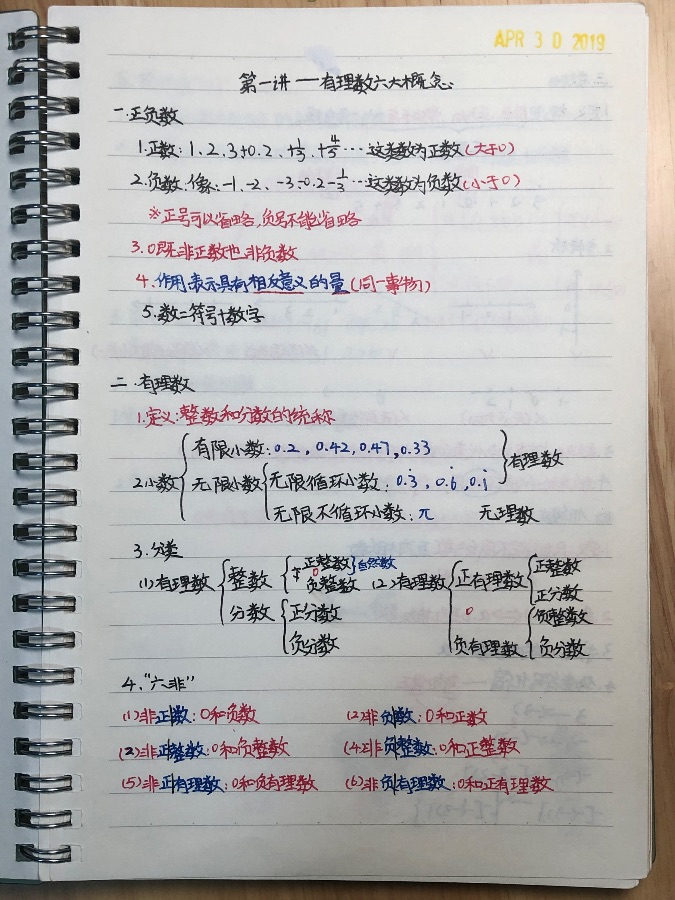 APR 30 2019
第一讲——有理数六大概念
一.正负数
1.正数:1、2、3、+0.2、+1/3、+4/5…这类数为正数(大于0)
2.负数:像:-1、-2、-3、-0.2-1/3…这类数为负数(小于0)
※正号可以省略,负号不能省略
3.0既非正数也非负数
4.作用:表示具有相反意义的量(同一事物)
5.数=符号+数字
二.有理数
1.定义:整数和分数的统称
有限小数:0.2,0.42,0.47,0.33
2小数 无限小数 无限循环小数:0.3̇,0.6̇,0.1̇ 有理数
无限不循环小数:π 无理数
3.分类
(1)有理数 整数 正整数 0 自然数 负整数
分数 正分数 负分数
(2)有理数 正有理数 正整数 正分数
0
负有理数 负整数 负分数
4."六非"
(1)非正数:0和负数 (2)非负数:0和正数
(2)非正整数:0和负整数 (4)非负整数:0和正整数
(5)非正有理数:0和负有理数 (6)非负有理数:0和正有理数